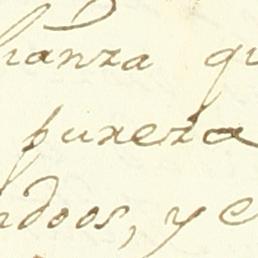 ianza qu
pureza
ndoos, y e